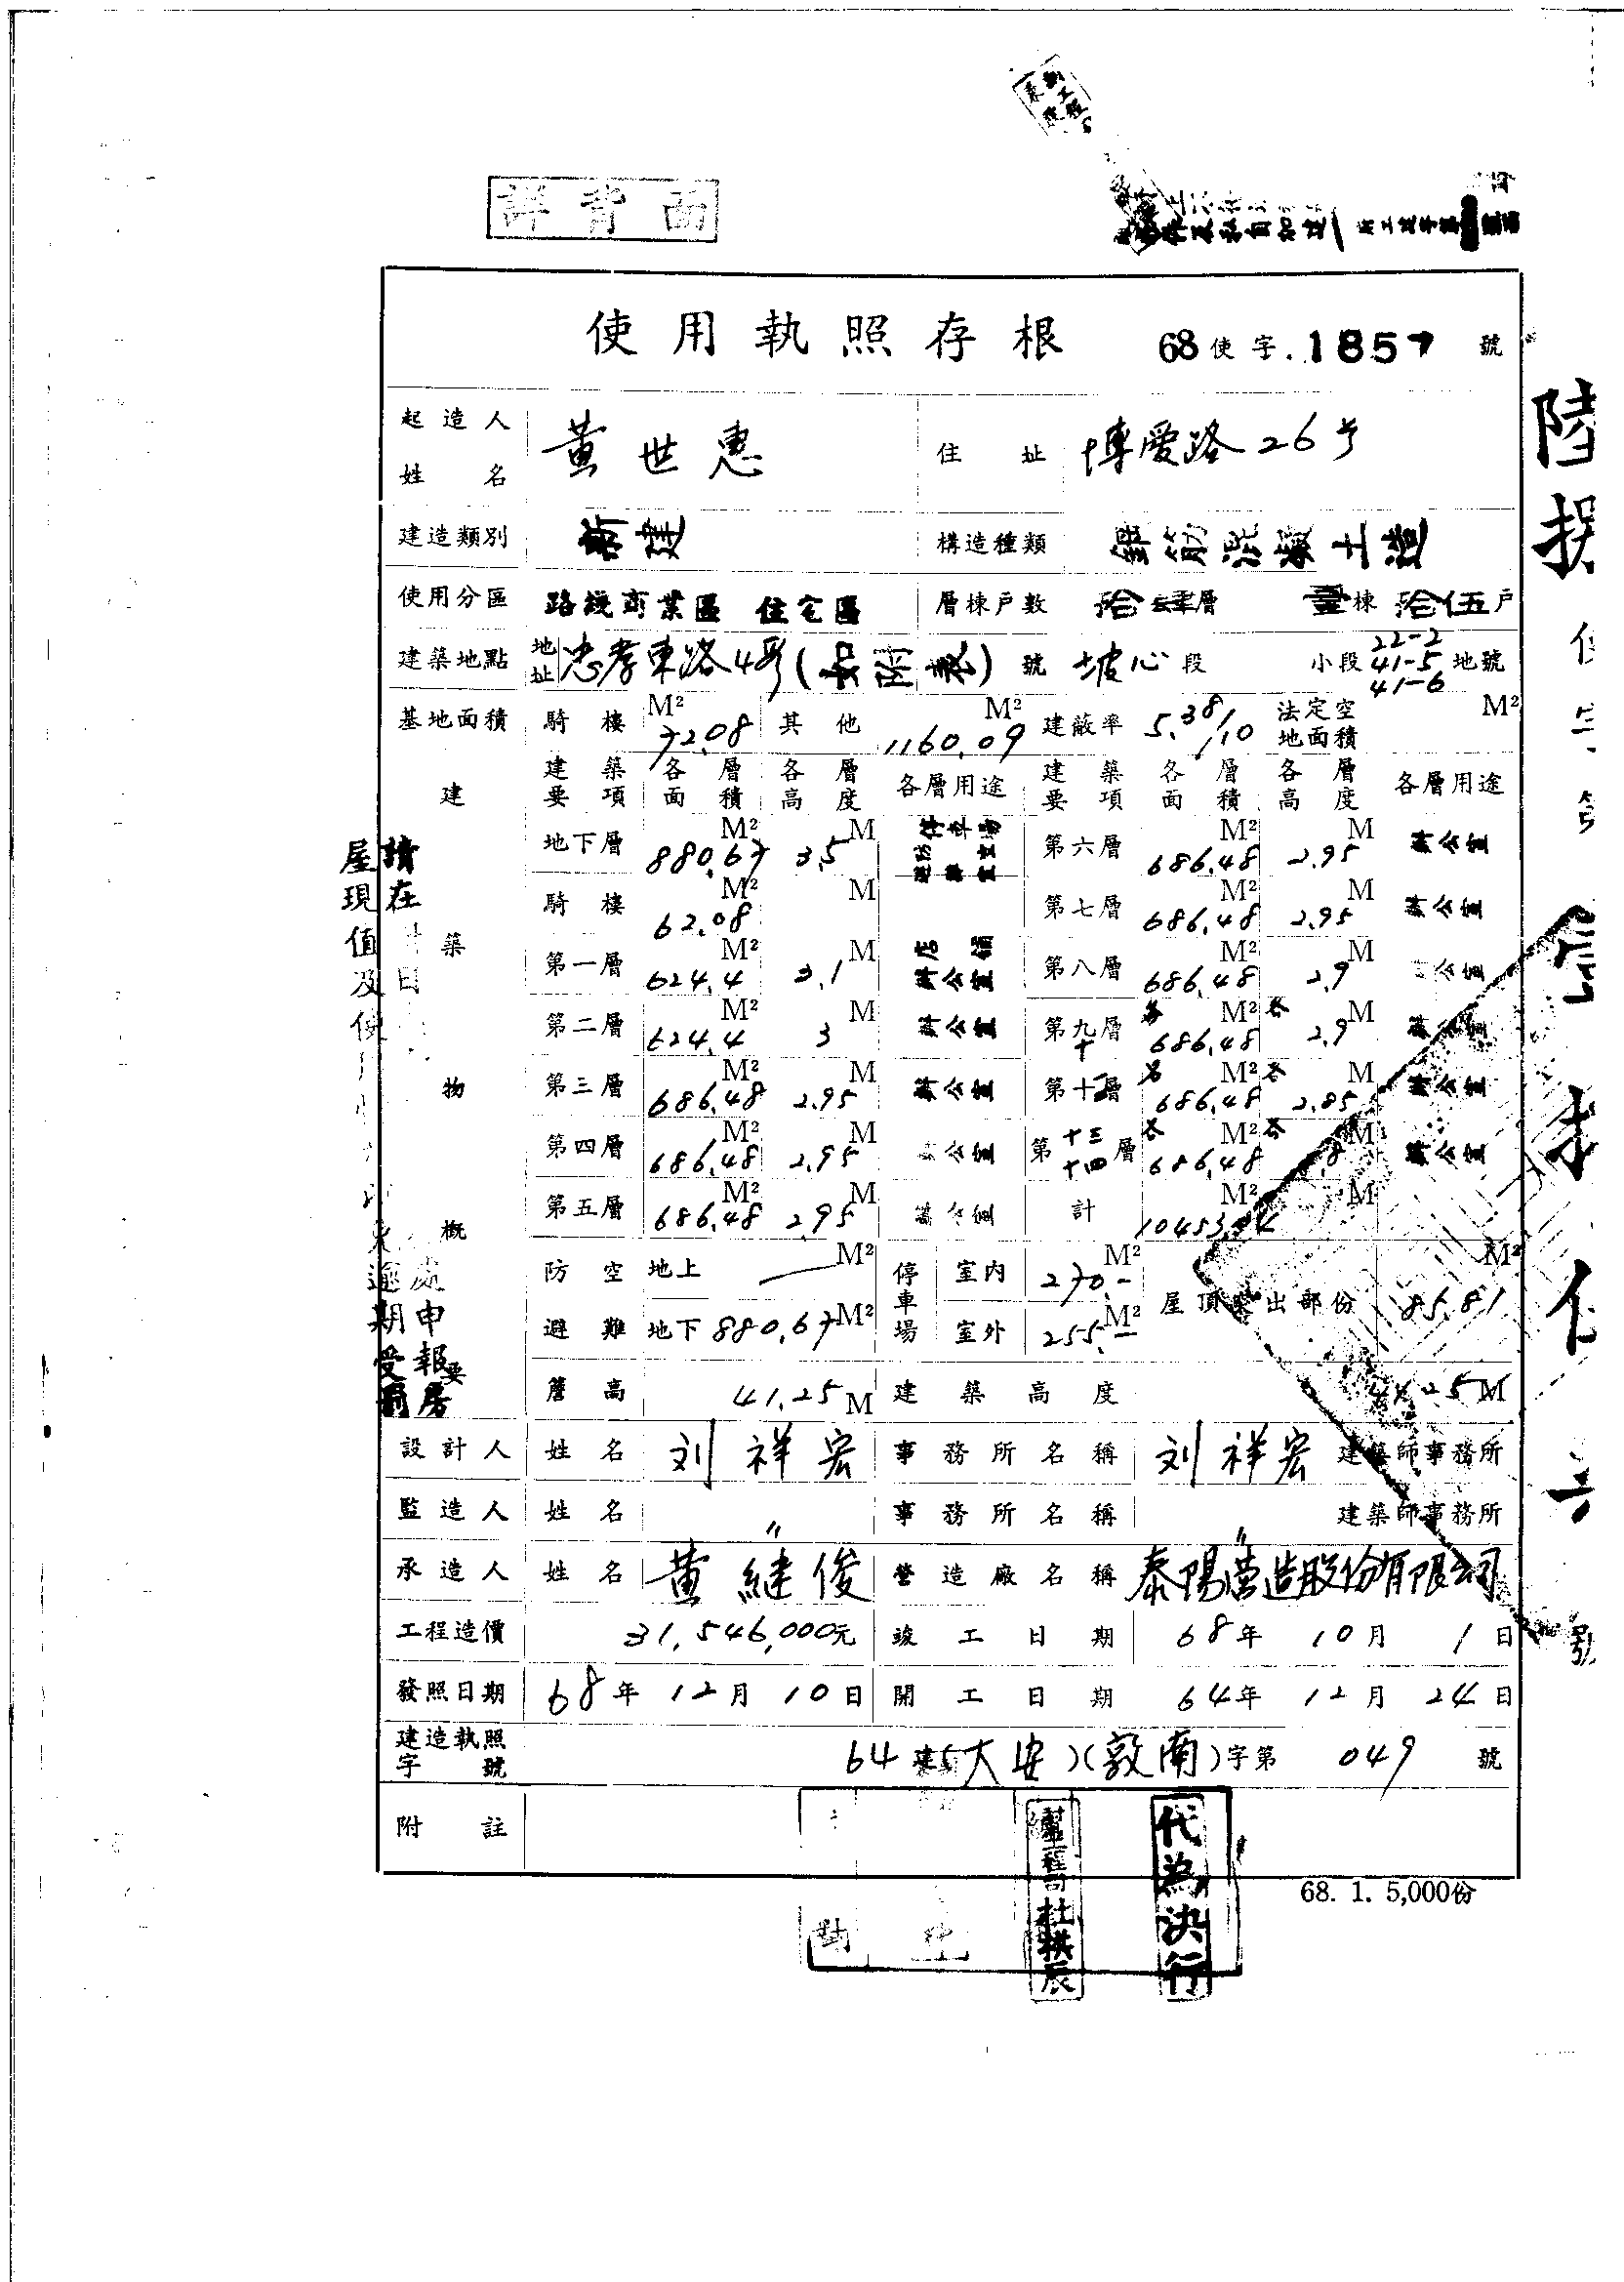 詳背面
使用執照存根 68使字.1857號
起造人姓名 黃世惠 住址 博愛路26号
建造類別 新建 構造種類 鋼筋混凝土造
使用分區 路線商業區 住宅區 層棟戶數 拾肆層 壹棟 拾伍戶
建築地點 地址 忠孝東路4段( ) 號 坡心段 小段 22-2 41-5 41-6 地號
基地面積 騎樓 72.08 M² 其他 1160.09 M² 建蔽率 5.38/10 法定空地面積 M²
建築物概要
建築要項 各層面積 各層高度 各層用途 建築要項 各層面積 各層高度 各層用途
地下層 880.67 M² 3.5 M 停車場 防空避難室 第六層 686.48 M² 2.95 M 辦公室
騎樓 62.08 M² M 第七層 686.48 M² 2.95 M 辦公室
第一層 624.4 M² 3.1 M 店舖 辦公室 第八層 686.48 M² 2.9 M 公室
第二層 624.4 M² 3 M 辦公室 第九十層 各 686.48 M² 各 2.9 M 辦公室
第三層 686.48 M² 2.95 M 辦公室 第十層 各 686.48 M² 各 2.85 M 辦公室
第四層 686.48 M² 2.95 M 公室 第十三十四層 各 686.48 M² 各 8 M 辦公室
第五層 686.48 M² 2.95 M 計 M² M
防空避難 地上 — M² 停車場 室內 270.- M² 屋頂突出部份 85.81 M²
地下 880.67 M² 室外 255.- M²
簷高 41.25 M 建築高度 41.25 M
設計人 姓名 刘祥宏 事務所名稱 刘祥宏 建築師事務所
監造人 姓名 〃 事務所名稱 〃 建築師事務所
承造人 姓名 黃継俊 營造廠名稱 泰陽营造股份有限公司
工程造價 31,546,000元 竣工日期 68年10月1日
發照日期 68年12月10日 開工日期 64年12月24日
建造執照字號 64建(大安)(敦南)字第049號
附註
代為決行
68. 1. 5,000份